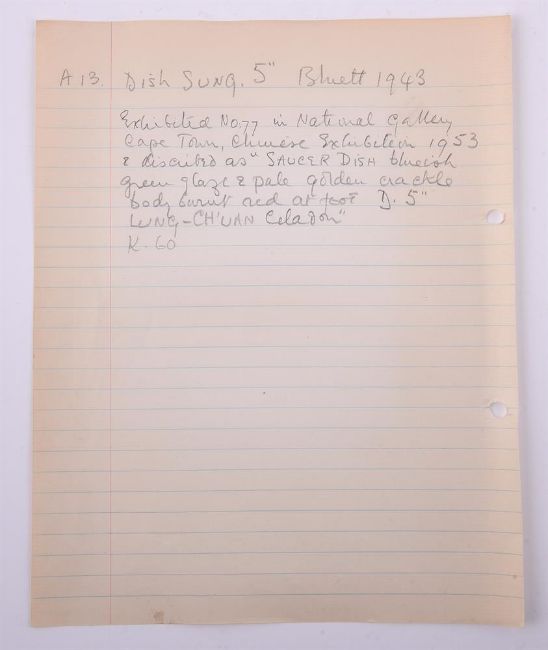 A 13. Dish SUNG. 5" Bluett 1943
Exhibited No.77 in National Gallery
Cape Town, Chinese Exhibition 1953
& discribed as "SAUCER DISH blueish
green glaze & pale golden crackle
body burnt red at foot D. 5"
LUNG-CH'UAN Celadon"
K. 60